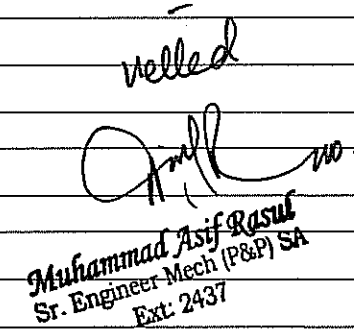 Muhammad Asif Rasul
Sr. Engineer Mech (P&P) SA
Ext: 2437